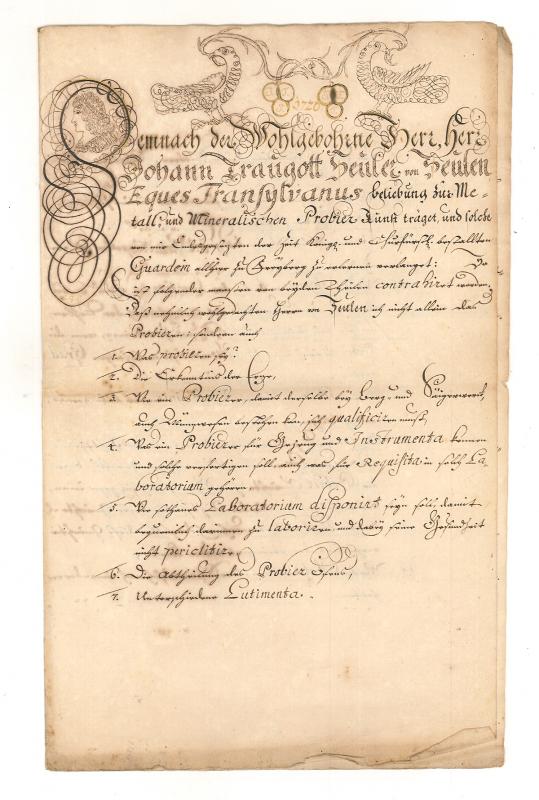 Demnach der Wohlgebohrne Herr, Herr
Johann Traugott Seuler von Seulen
Eques Transylvanus beliebung zur Me-
tall: und Mineralischen Probier Kunst träget, und solche
von mir Endesgesetzten der Zeit Königl: und Churfürstl: bestallten
Guardein allhier zu Freyberg zu erlernen verlanget: So
ist folgender maassen von beyden Theilen contrahiret worden,
daß nehmlich wohlgedachten Herrn von Seulen ich nicht allein das
Probieren; sondern auch
1. Was probieren sey?
2. Die Erkentnus der Erze,
3. Wie ein Probierer, damit derselbe bey Berg- und
auch Münzwesen bestehen kan, sich qualificiren müße,
4. Was ein Probierer für Gezeug und Instrumenta kennen
und solche verfertigen soll, auch was für Requisita in solch La-
boratorium gehören,
5. Wie sothanes Laboratorium disponirt seyn soll, damit
bequemlich darinnen zu laboriren und dabey seine Gesundheit
nicht periclitire,
6. Die Abtheilung des Probier Ofens,
7. Unterschiedene Lutimenta.